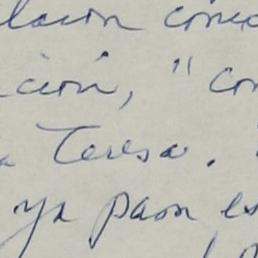 lación conec
ición, "con
a Teresa.
ya pason es